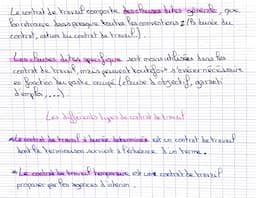 Le contrat de travail comporte des clauses dites générale, que
l'on retrouve dans presque toutes les conventions : (la durée du
contrat, nature du contrat de travail).
Les clauses dites spécifique sont moins utilisées dans les
contrat de travail, mais peuvent toutefois s'avérer nécessaire
en fonction du poste occupé (clause d'objectif, garanti
d'emploi, ...)
Les différents types de contrat de travail
Le contrat de travail à durée déterminée est un contrat de travail
dont la terminaison survient à l'échéance d'un terme.
Le contrat de travail temporaire est un contrat de travail
proposer par les agences d'intérim.